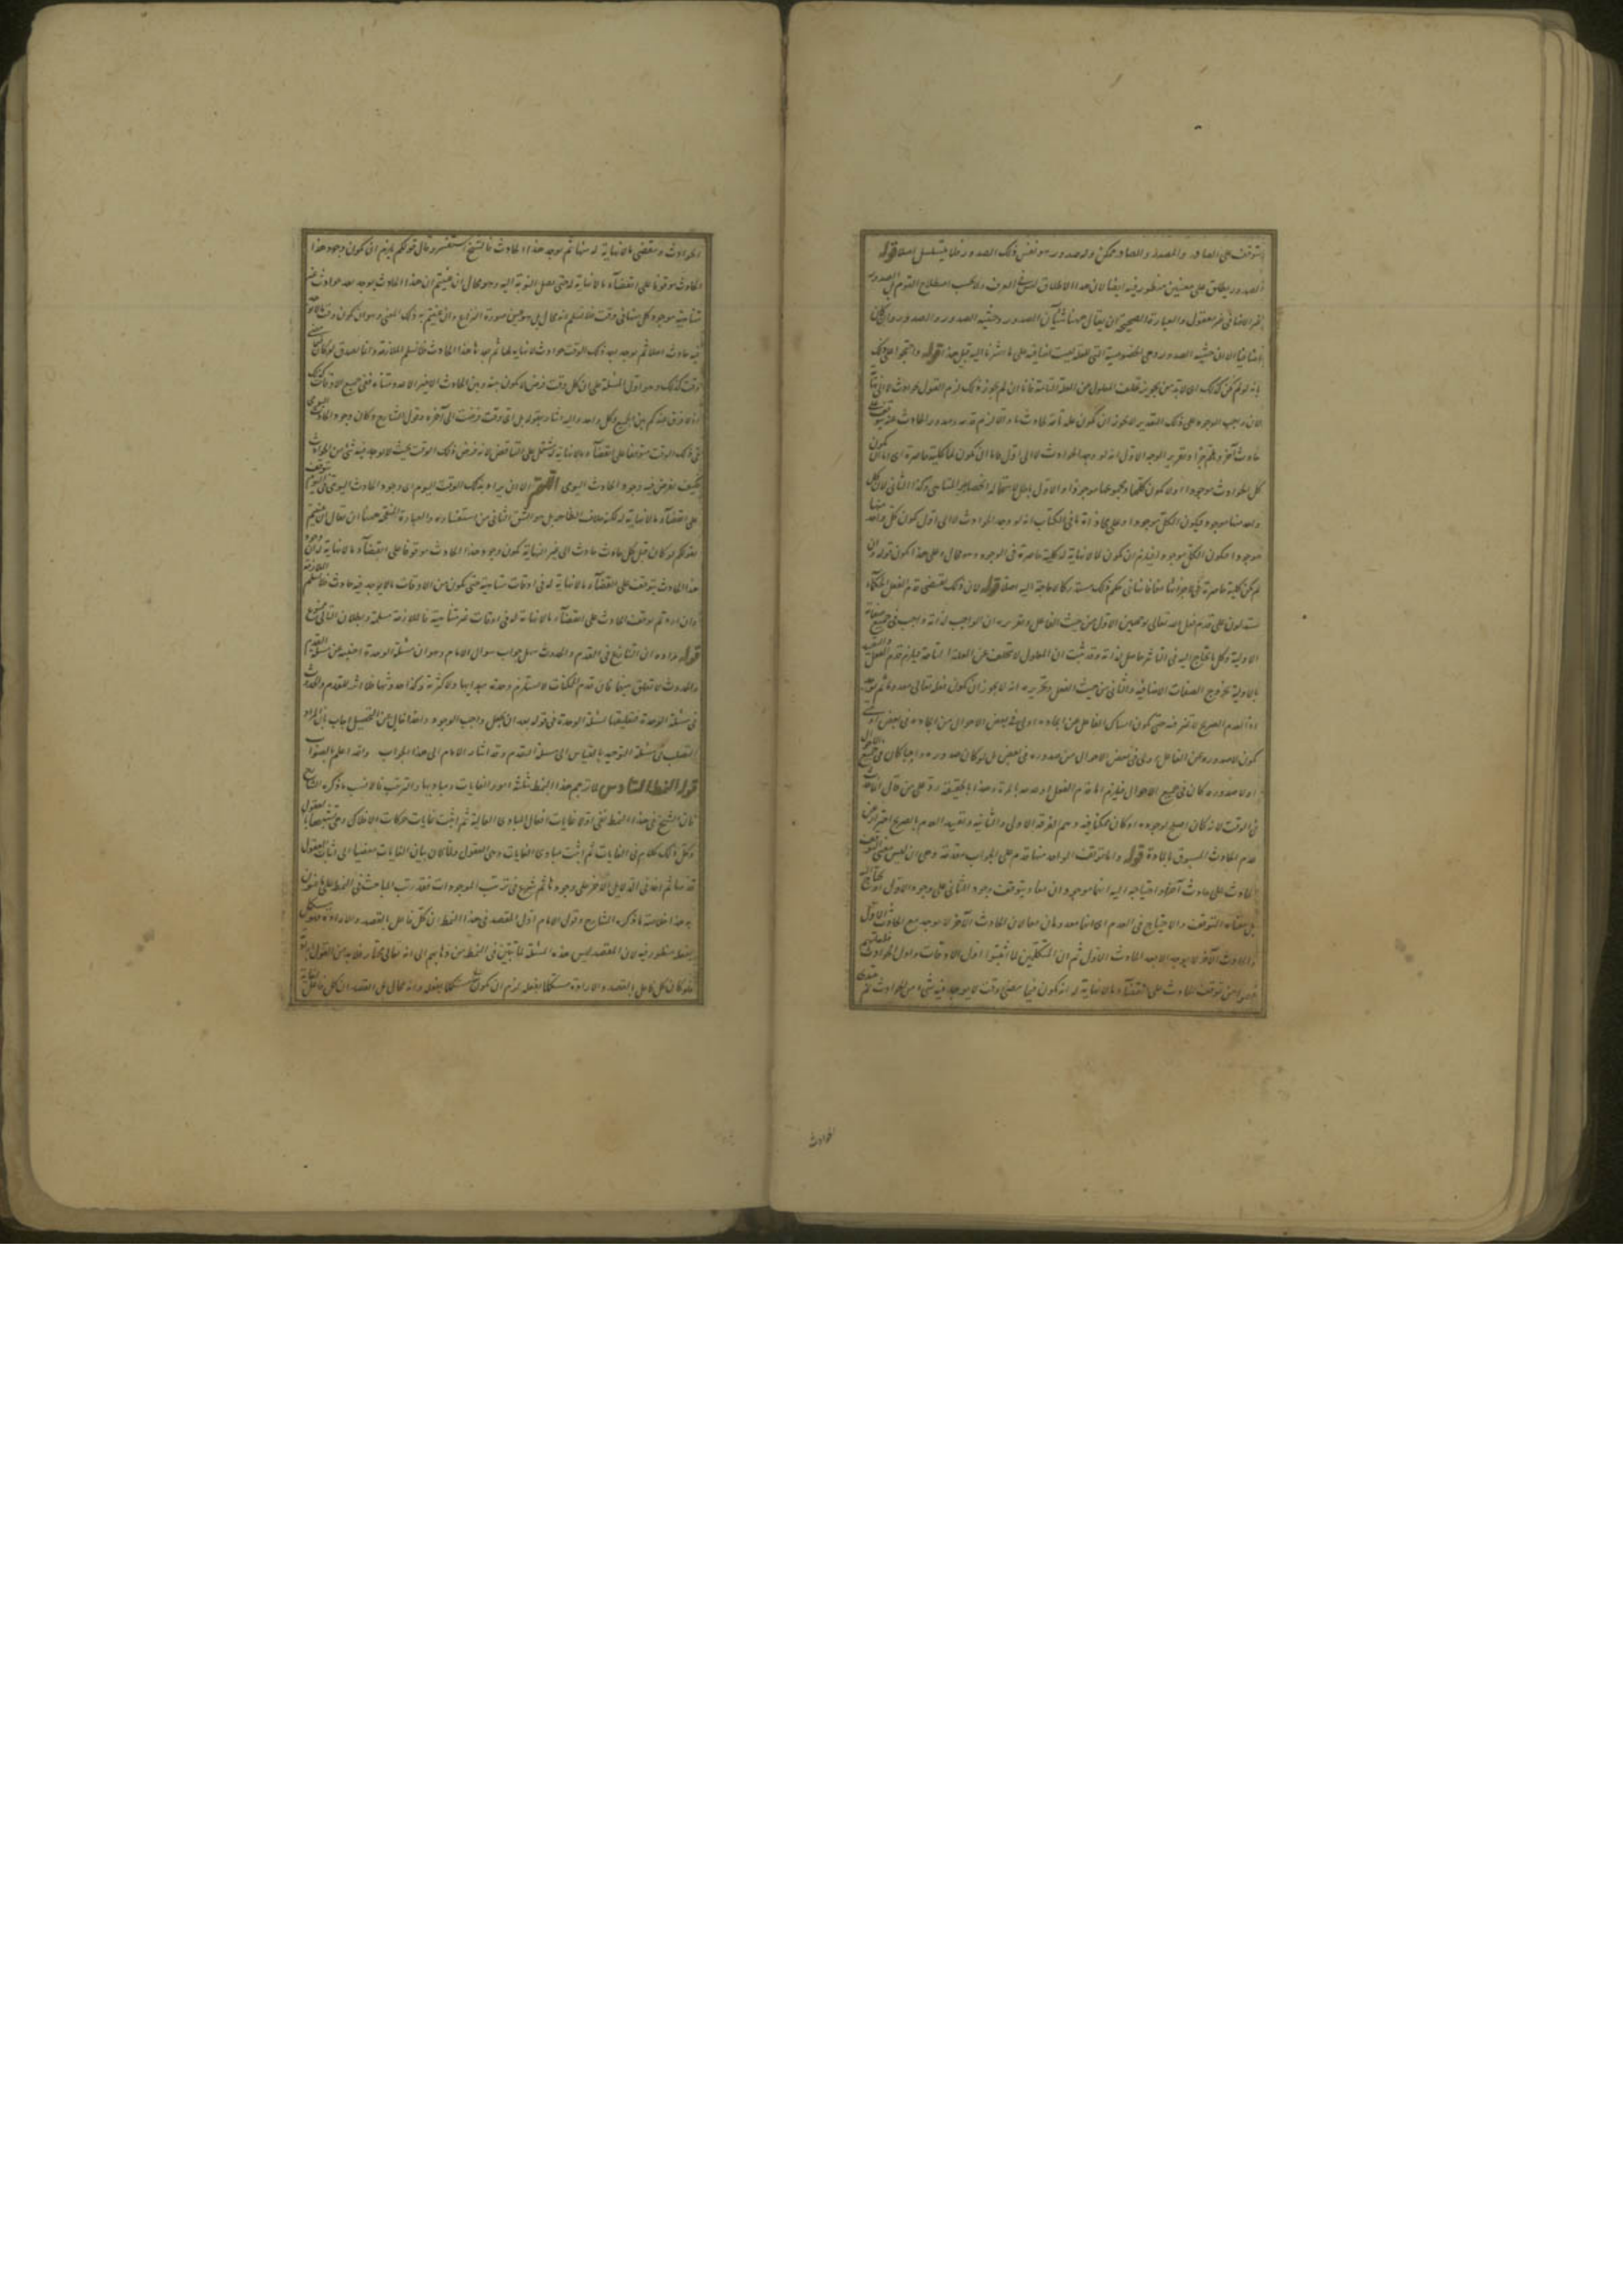 يتوقف على الصادر والمصدر والصادر ممكن وله صدور هو نفس ذلك الصدور فلا يتسلسل اصلا قوله
الصدور يطلق على معنيين منظور فيه ايضا لان هذا الاطلاق ليس في العرف ولا بحسب اصطلاح القوم
الغير الاضافى غير معقول والعبارة الصحيحة ان يقال ههنا شيئان الصدور وحيثية الصدور والصدور وان كان
اضافيا الا ان حيثية الصدور وهى الخصوصية التى للعلة ليست اضافية على ما اشرنا اليه قبل هذا قوله
بانه لو لم يكن كذلك
الان واجب الوجود على ذلك التقدير لا يجوز ان يكون علة تامة لحادث ما والا لزم قدمه وصدور الحادث عنه يتوقف على
حادث آخر وتقرير الوجه الاول انه لو وجد الحوادث لا الى اول فاما ان يكون لها كلية حاصرة اى
كل الحوادث موجودا او لا يكون كلها ومجموعها موجودا والاول باطل
واحد منها موجود فيكون الكل موجودا
موجودا فيكون الكل موجودا فيلزم ان يكون لما لا نهاية له كلية حاصرة فى الوجود وهو محال وعلى هذا يكون قوله وان
لم يكن كلية حاصرة مستدركا لا حاجة اليه اصلا قوله لان ذلك يقتضى قدم الفعل
يستدلون على قدم فعل الله تعالى بوجهين الاول من حيث الفاعل وتقريره ان الواجب لذاته واجب فى جميع صفاته
الاولية وكل ما يحتاج اليه فى التاثير حاصل لذاته وقد ثبت ان المعلول لا يتخلف عن العلة التامة فيلزم قدم الفعل
بالاولية يخرج الصفات الاضافية والثانى من حيث الفعل وتحريره انه لا يجوز ان يكون فعله تعالى معدوما ثم يوجد
اذ العدم الصريح لا تميز فيه حتى يكون امساك الفاعل عن ايجاده اولى فى بعض الاحوال من ايجاده فى بعض
يكون لا صدوره عن الفاعل اولى فى بعض الاحوال من صدوره فى بعض بل لو كان صدوره واجبا كان فى جميع
او لا صدوره كان فى جميع الاحوال فيلزم اما قدم الفعل او عدمه بالمرة وهذا بالحقيقة رد على من قال
فى الوقت لانه كان اصلح لوجوده او كان ممكنا فيه وهم الفرقة الاولى والثانية وتقييد العدم بالصريح احتراز عن
عدم الحادث المسبوق بالمادة قوله واما توقف الواحد منها قدم على الجواب مقدمة وهى ان ليس معنى توقف
الحادث على حادث آخر او احتياجه اليه انهما موجودان معا ويتوقف وجود الثانى على وجود الاول
بل معناه التوقف والاحتياج فى العدم اى انهما معدومان معا لان الحادث الآخر لا يوجد مع الحادث الاول
والحادث الآخر لا يوجد الا بعد الحادث الاول ثم ان المتكلمين لما اثبتوا اول الاوقات واول الحوادث
من توقف الحادث على انقضاء ما لا نهاية له ان يكون فيما مضى وقت لا يوجد فيه شىء من الحوادث ثم
الحوادث
الحوادث وينقضى ما لا نهاية له منها ثم يوجد هذا الحادث فالشيخ استفسر وقال قولكم يلزم ان يكون وجود هذا
الحادث موقوفا على انقضاء ما لا نهاية له حتى يصل النوبة اليه وهو محال ان عنيتم ان هذا الحادث يوجد بعد حوادث
متناهية موجود كل منها فى وقت فلا نسلم انه محال بل هو عين صورة النزاع وان عنيتم به ذلك المعنى وهو ان يكون وقت
فيه حادث اصلا ثم يوجد بعد ذلك الوقت حوادث لا نهاية لها ثم بعدها هذا الحادث فلا نسلم الملازمة وانما يصدق لو كان
وقت كذلك وهو اول المسئلة على ان كل وقت فرض لا يكون بينه وبين الحادث الاخير الا عدد متناه ففى جميع الاوقات كذلك
اذ لا فرق عندكم بين الجميع وكل واحد واليه اشار بقوله بل اى وقت فرضت الى آخره وقول الشارح وكان وجود الحادث اليومى
فى ذلك الوقت متوقفا على انقضاء ما لا نهاية له يشتمل على التناقض لانه فرض ذلك الوقت بحيث لا يوجد فيه شىء من الحوادث
فكيف يفرض فيه وجود الحادث اليومى اللهم الا ان يراد بذلك الوقت اليوم اى وجود الحادث اليومى فى اليوم
على انقضاء ما لا نهاية له لكنه خلاف الظاهر بل هو الشق الثانى من استفساره والعبارة المنقحة ههنا ان يقال ان عنيتم
بقولكم لو كان قبل كل حادث حادث الى غير النهاية يكون وجود هذا الحادث موقوفا على انقضاء ما لا نهاية له ان
هذا الحادث يتوقف على انقضاء ما لا نهاية له فى اوقات متناهية حتى يكون من الاوقات ما لا يوجد فيه حادث فلا نسلم الملازمة
وان اردتم توقف الحادث على انقضاء ما لا نهاية له فى اوقات غير متناهية فالملازمة مسلمة وبطلان التالى ممنوع
قوله مراده ان التنازع فى القدم والحدوث سهل جواب سوال الامام وهو ان مسئلة الوحدة اجنبية عن مسئلة القدم
والحدوث لا تعلق بينهما فان قدم الممكنات لا يستلزم وحدة مبدائها ولا كثرته وكذا حدوثها فلا اثر للقدم والحدوث
فى مسئلة الوحدة فتعليقها بمسئلة الوحدة فى قوله بعد ان يجعل واجب الوجود واحدا خال عن التحصيل اجاب بان المراد
التصلب فى مسئلة التوحيد بالقياس الى مسئلة القدم وقد اشار الامام الى هذا الجواب والله اعلم بالصواب
قوله النمط السادس لما ترجم هذا النمط بثلثة امور الغايات ومباديها والترتيب فالانسب ما ذكره الشارح
فان الشيخ فى هذا النمط نفى اولا غايات افعال المبادى العالية ثم اثبت غايات حركات الافلاك
وكل ذلك كلام فى الغايات ثم اثبت مبادى الغايات وهى العقول ولما كان بيان الغايات مفضيا الى اثبات العقول
قدمها ثم اخذ فى الدلايل الاخر على وجودها ثم شرع فى ترتيب الموجودات فقد رتب المباحث فى النمط على ما عنون
به هذا خلاصة ما ذكره الشارح وقول الامام اول المقصد فى هذا النمط ان كل فاعل بالقصد والارادة مستكمل
بفعله منظور فيه لان المقصد ليس هذه المسئلة
فلو كان كل فاعل بالقصد والارادة مستكملا بفعله لزم ان يكون مستكملا بفعله وانه محال بل المقصد ان كل فاعل